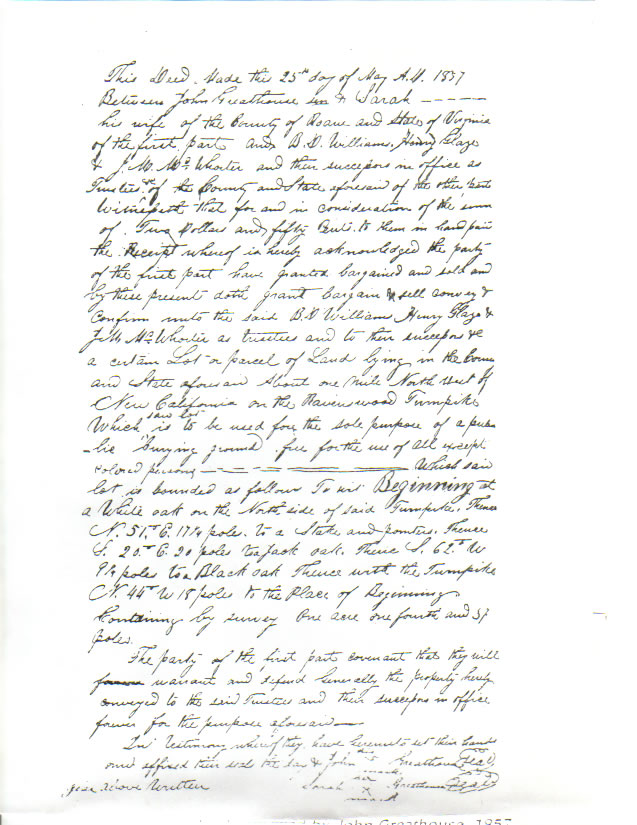 This Deed Made this 25th day of May A.D. 1857
Between John Greathouse & Sarah
his wife of the County of Roane and State of Virginia
of the first part and B.D. Williams, Henry Glaze
& J.M. McWhorter and their successors in office as
Trustees of the County and State aforesaid of the other part
Witnesseth that for and in consideration of the sum
of Two Dollars and fifty Cents to them in hand paid
the Receipt whereof is hereby acknowledged the party
of the first part have granted bargained and sold and
by these present doth grant bargain & sell convey &
Confirm unto the said B.D Williams Henry Glaze &
J.M. McWhorter as trustees and to their successors &c
a certain Lot or parcel of Land lying in the County
and State aforesaid About one mile North West of
New California on the Ravenswood Turnpike
Which said lot is to be used for the sole purpose of a pub
-lic burying ground free for the use of all except
colored persons Which said
lot is bounded as follows To wit Beginning at
a White oak on the North side of said Turnpike. Thence
N. 51° E. 17 poles to a Stake and pointers. Thence
S. 20° E. 20 poles to a Jack oak. Thence S. 62° W
poles to a Black oak Thence with the Turnpike
N. 44° W 18 poles to the Place of Beginning
Containing by survey One acre one fourth and
poles.
The party of the first part covenant that they will
warrant and defend Generally the property hereby
conveyed to the said Trustees and their successors in office
forever for the purpose aforesaid
In Testimony whereof they have hereunto set their hands
and affixed their seal the day & John his x mark Greathouse (Seal)
year above Written Sarah her x mark Greathouse (Seal)
by John Greathouse, 1857